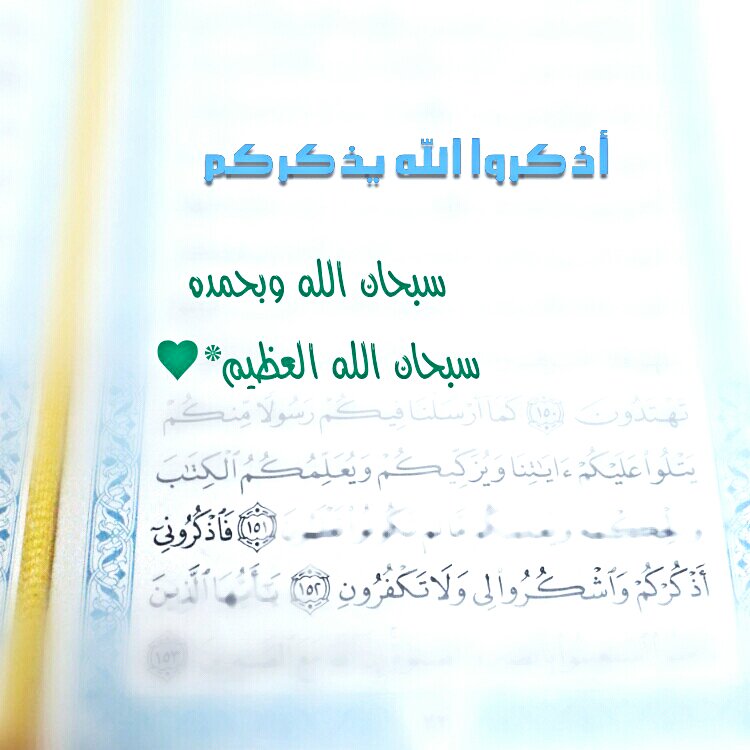 أذكروا الله يذكركم
سبحان الله وبحمده
سبحان الله العظيم*♥
تَهْتَدُونَ ١٥٠ كَمَا أَرْسَلْنَا فِيكُمْ رَسُولًا مِّنكُمْ
يَتْلُوا۟ عَلَيْكُمْ ءَايَٰتِنَا وَيُزَكِّيكُمْ وَيُعَلِّمُكُمُ ٱلْكِتَٰبَ
١٥١ فَٱذْكُرُونِىٓ
أَذْكُرْكُمْ وَٱشْكُرُوا۟ لِى وَلَا تَكْفُرُونِ ١٥٢ يَٰٓأَيُّهَا ٱلَّذِينَ
١٥٣